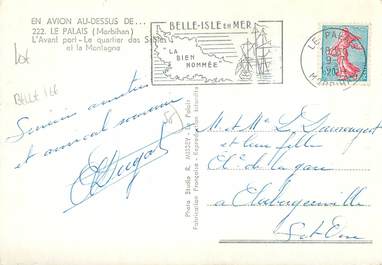 EN AVION AU-DESSUS DE...
222. LE PALAIS (Morbihan)
L'Avant port - Le quartier des Salines
et la Montagne
BELLE-ISLE EN MER
"LA
BIEN
NOMMÉE"
LE PALAIS
9
MORBIHAN
lot
Belle isle
50
Souvenirs amitiés
et amical souvenir
Photo Studio R. MISSET - Le Palais
Fabrication Française - Reproduction interdite
M. et Mme
et leur fille
de la gare
à Aubergenville
Set-Oise